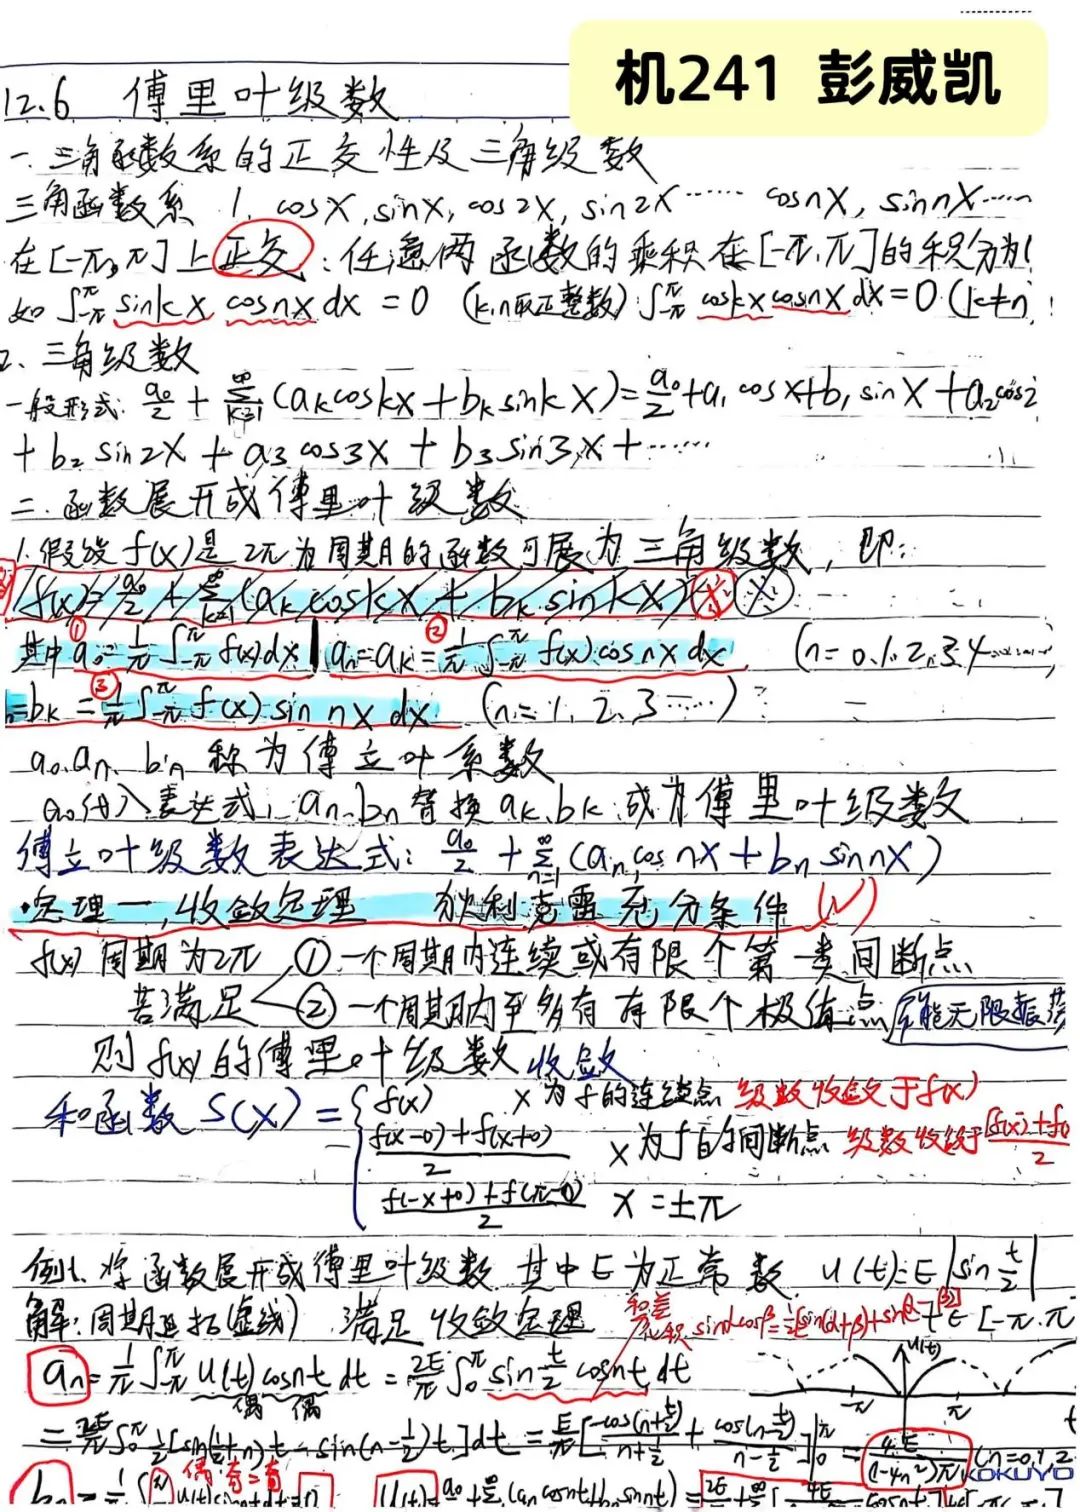 机241 彭威凯
12.6 傅里叶级数
一.三角函数系的正交性及三角级数
三角函数系 1, cosx, sinx, cos2x, sin2x …… cosnx, sinnx……
在[-π,π]上正交:任意两函数的乘积在[-π,π]的积分为
如 ∫_{-π}^{π} sinkx cosnx dx = 0 (k,n取正整数) ∫_{-π}^{π} coskx cosnx dx = 0 (k≠n
2、三角级数
一般形式: a₀/2 + Σ_{k=1}^{∞} (aₖcoskx+bₖsinkx) = a₀/2 + a₁cosx+b₁sinx+a₂cos2
+ b₂ sin2x + a₃ cos3x + b₃ sin3x + ……
二.函数展开成傅里叶级数
1.假设f(x)是2π为周期的函数可展为三角级数,即:
f(x)= a₀/2 + Σ_{k=1}^{∞} (aₖcoskx + bₖ sinkx)
其中 ① a₀=1/π ∫_{-π}^{π} f(x)dx | aₙ=aₖ= ② 1/π ∫_{-π}^{π} f(x)cosnx dx (n=0.1.2.3.4……)
=bₖ = ③ 1/π ∫_{-π}^{π} f(x) sin nx dx (n=1、2、3……)
a₀.aₙ、bₙ 称为傅立叶系数
a₀代入表达式, aₙ、bₙ替换aₖ、bₖ 成为傅里叶级数
傅立叶级数表达式: a₀/2 + Σ_{n=1}^{∞} (aₙcos nx + bₙ sinnx)
·定理一,收敛定理 狄利克雷充分条件
f(x)周期为2π ①一个周期内连续或有限个第一类间断点
若满足 ②一个周期内至多有有限个极值点 不能无限振荡
则f(x)的傅里叶级数收敛
和函数 S(x) = { f(x) x为f的连续点 级数收敛于f(x)
(f(x-0)+f(x+0))/2 x为f的间断点 级数收敛于
(f(-π+0)+f(π-0))/2 x=±π
例1、将函数展开成傅里叶级数 其中E为正常数 u(t)=E|sin t/2|
解:周期延拓(虚线) 满足收敛定理 和差 化积 sinαcosβ=1/2[sin(α+β)+sin(α-β)] t∈[-π.π
aₙ= 1/π ∫_{-π}^{π} u(t) cosnt dt = 2E/π ∫_0^π sin t/2 cosnt dt u(t)
偶 偶 -π π t
= 2E/π ∫_0^π 1/2[sin(1/2+n)t - sin(n-1/2)t]dt = E/π [-cos(n+1/2)t/(n+1/2) + cos(n-1/2)t/(n-1/2)]|_0^π = 4E/((1-4n²)π) (n=0,1,2
偶 奇=奇 KOKUYO